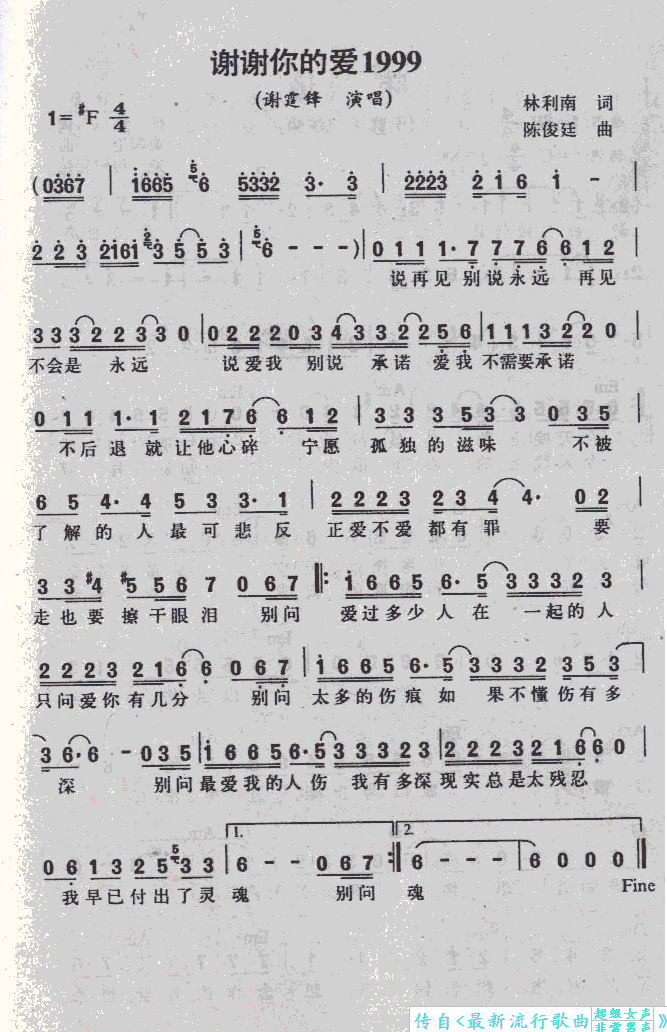 谢谢你的爱1999
(谢霆锋 演唱)
1=#F 4/4
林利南 词
陈俊廷 曲
(0367 | 1665 5 6 5332 3· 3 | 2223 2 1 6 1 -
2 2 3 2161 2 3 5 5 3 | 5 6 - - -) | 0 1 1 1 1· 7 7 7 6 6 6 1 2
说再见 别说永远 再见
3 3 3 3 2 2 3 3 0 | 0 2 2 2 0 3 4 3 3 2 2 5 6 | 1 1 1 3 2 2 0
不会是 永远 说爱我 别说 承诺 爱我 不需要承诺
0 1 1 1· 1 2 1 7 6 6 1 2 | 3 3 3 3 5 3 3 0 3 5
不后退就让他心碎 宁愿 孤独的滋味 不被
6 5 4· 4 5 3 3· 1 | 2 2 2 3 2 3 4 4· 0 2
了解的人最可悲反 正爱不爱都有罪 要
3 3 #4 #5 5 6 7 0 6 7 |: 1 6 6 5 6· 5 3 3 3 2 3
走也要擦干眼泪 别问 爱过多少人在 一起的人
2 2 2 3 2 1 6 6 0 6 7 | 1 6 6 5 6· 5 3 3 3 2 3 5 3
只问爱你有几分 别问 太多的伤痕如 果不懂伤有多
3 6· 6 - 0 3 5 | 1 6 6 5 6· 5 3 3 3 2 3 | 2 2 2 3 2 1 6 6 0
深 别问最爱我的人伤 我有多深现实总是太残忍
1. 2.
0 6 1 3 2 5 5 3 3 | 6 - - 0 6 7 :| 6 - - - | 6 0 0 0 ||
我早已付出了灵 魂 别问 魂 Fine
传自<最新流行歌曲 超级女声 非常男声》